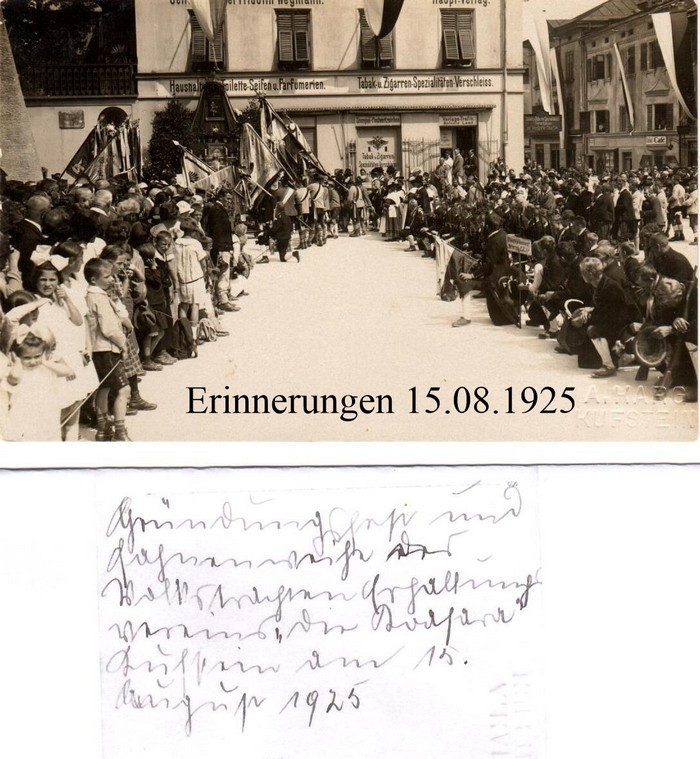 Fridolin Wegmann.
Haupt-Verlag.
Haushalt Toilette-Seifen u. Parfumerien.
Tabak-u. Zigarren-Spezialitäten-Verschleiss.
Tabak u. Zigarren
Café
Erinnerungen 15.08.1925
A. KARG
KUFSTEIN
Gründungsfest und
Fahnenweihe des
Volkstrachten Erhaltungs
vereins „die Koasara"
Kufstein am 15.
August 1925